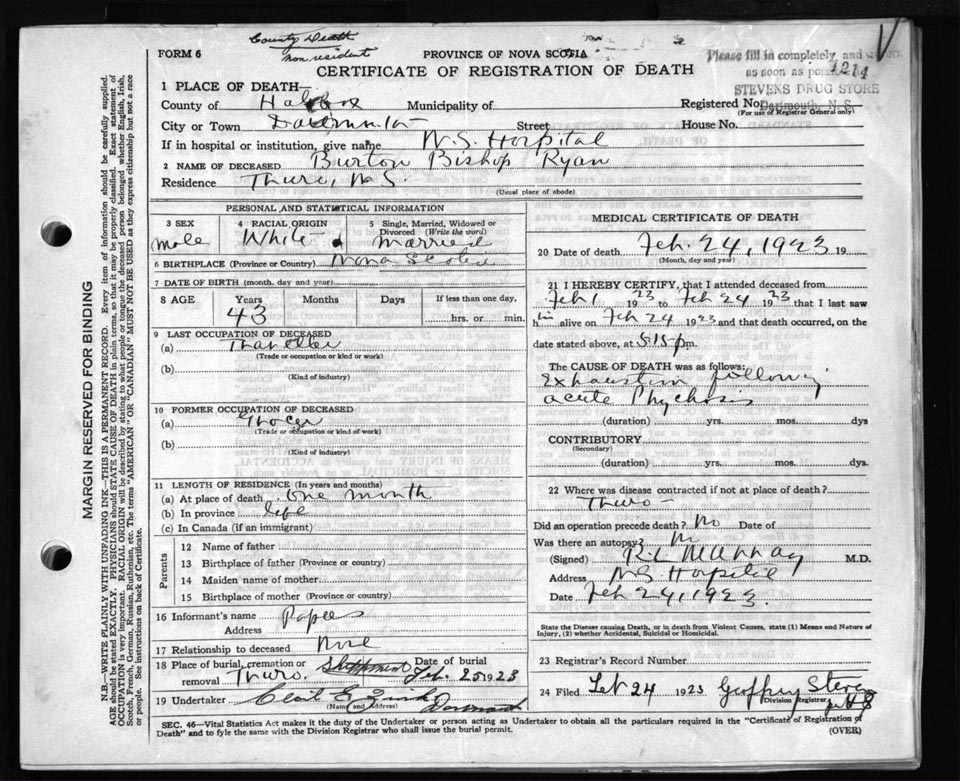 County Death
non resident
FORM 6
PROVINCE OF NOVA SCOTIA
CERTIFICATE OF REGISTRATION OF DEATH
Please fill in completely and
as soon as
1214
STEVENS DRUG STORE
Dartmouth, N. S.
1 PLACE OF DEATH—
County of Halifax Municipality of Registered No.
(For use of Registrar General only)
City or Town Street House No.
If in hospital or institution, give name N.S. Hospital
2 NAME OF DECEASED Burton Bishop Ryan
Residence Truro, N.S.
(Usual place of abode)
MARGIN RESERVED FOR BINDING
N.B.—WRITE PLAINLY WITH UNFADING INK—THIS IS A PERMANENT RECORD. Every item of information should be carefully supplied.
AGE should be stated EXACTLY. PHYSICIANS should STATE CAUSE OF DEATH in plain terms, so that it may be properly classified. Exact statement of
OCCUPATION is very important. RACIAL ORIGIN will be described by stating to what people or tongue the deceased person belonged whether English, Irish,
Scotch, French, German, Russian, Ruthenian, etc. The terms "AMERICAN" or "CANADIAN" MUST NOT BE USED as they express citizenship but not a race
or people. See instructions on back of Certificate.
PERSONAL AND STATISTICAL INFORMATION
3 SEX
Male
4 RACIAL ORIGIN
White
5 Single, Married, Widowed or
Divorced (Write the word)
Married
6 BIRTHPLACE (Province or Country) Nova Scotia
7 DATE OF BIRTH (month, day and year)
8 AGE Years Months Days If less than one day,
43 hrs. or min.
9 LAST OCCUPATION OF DECEASED
(a) Traveller
(Trade or occupation or kind or work)
(b)
(Kind of industry)
10 FORMER OCCUPATION OF DECEASED
(a) Grocer
(Trade or occupation or kind of work)
(b)
(Kind of industry)
11 LENGTH OF RESIDENCE (In years and months)
(a) At place of death One month
(b) In province life
(c) In Canada (if an immigrant)
Parents
12 Name of father
13 Birthplace of father (Province or country)
14 Maiden name of mother
15 Birthplace of mother (Province or country)
16 Informant's name Papers
Address
17 Relationship to deceased None
18 Place of burial, cremation or Shipment Date of burial
removal Truro. Feb. 25 1923
19 Undertaker
(Name and Address)
MEDICAL CERTIFICATE OF DEATH
20 Date of death Feb. 24, 1923 19
(Month, day and year)
21 I HEREBY CERTIFY, that I attended deceased from
Feb 1 1923 to Feb 24 1923 that I last saw
him alive on Feb 24 1923 and that death occurred, on the
date stated above, at 5:15 p.m.
The CAUSE OF DEATH was as follows:
Exhaustion following
acute Phychosis
(duration) yrs. mos. ds.
CONTRIBUTORY
(Secondary)
(duration) yrs. mos. dys.
22 Where was disease contracted if not at place of death?
Truro
Did an operation precede death? No Date of
Was there an autopsy? No
(Signed) M.D.
Address N.S. Hospital
Date Feb 24, 1923.
State the Disease causing Death, or in death from Violent Causes, state (1) Means and Nature of
Injury, (2) whether Accidental, Suicidal or Homicidal.
23 Registrar's Record Number
24 Filed Feb 24 1923
Division Registrar
SEC. 46—Vital Statistics Act makes it the duty of the Undertaker or person acting as Undertaker to obtain all the particulars required in the "Certificate of Registration of
Death" and to fyle the same with the Division Registrar who shall issue the burial permit.
(OVER)